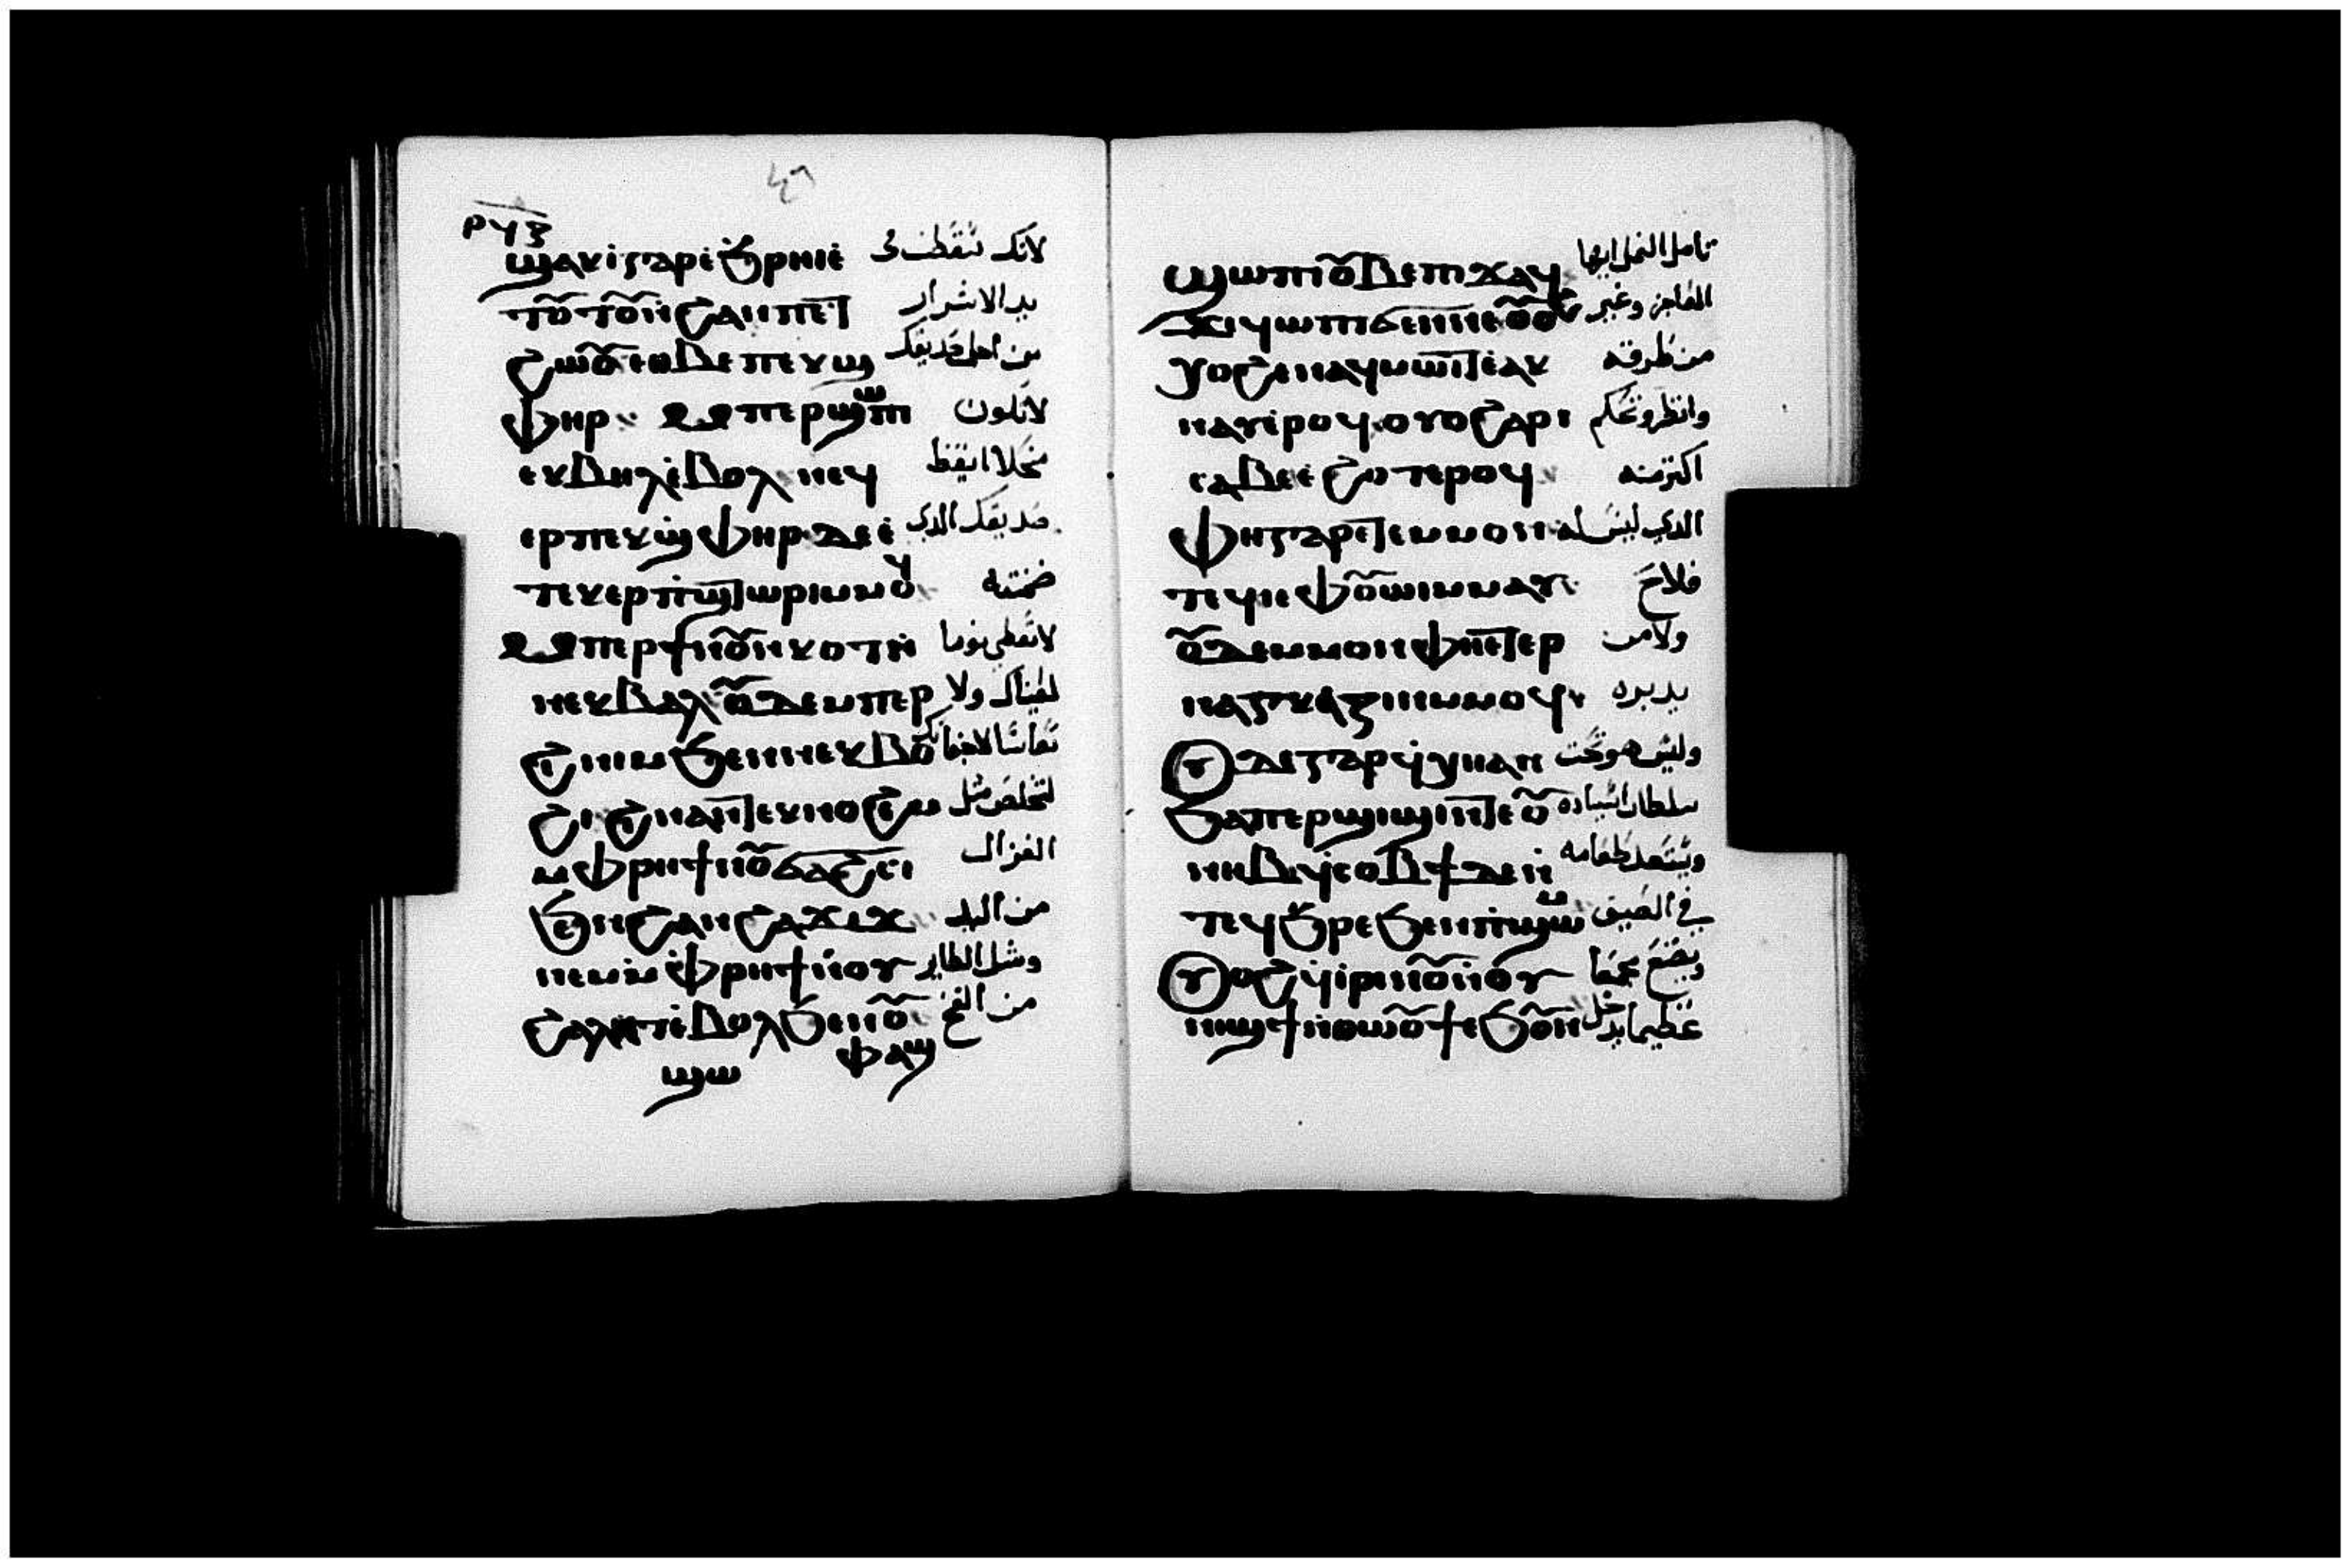 ⲣϥⲍ
ϣⲁⲕⲓ̀ⲅⲁⲣⲉ̀ϧⲣⲏⲓⲉ̀ لانك تسقط في
ⲧⲟ̃ⲧⲟ̃ⲛ̀ϩⲁⲛⲡⲉⲧ يد الاشرار
ϩⲱⲟ̃ⲉⲑⲃⲉⲡⲉⲕϣ من اجل صديقك
ⲫⲏⲣ ⲙⲡⲉⲣϣⲱⲡⲓ لاتكون
ⲉⲕⲃⲏⲗⲉ̀ⲃⲟⲗ ⲛⲉϥ منحلا ايقظ
ⲉⲣⲡⲉⲕϣ̀ⲫⲏⲣ ⲇⲉⲉ̀ صديقك الدي
ⲧⲉⲕⲉⲣⲡ̀ϣⲧⲱⲣⲓⲙⲙⲟϥ ضمنته
ⲙⲡⲉⲣϯⲛⲟ̃ⲛⲕⲟⲧⲛ̀ لاتعطي نوما
ⲛⲉⲕⲃⲁⲗ ⲟ̃ⲇⲉⲙⲡⲉⲣ لعيناك ولا
ϩⲓⲛⲓⲙϧⲉⲛⲛⲉⲕⲃⲟ̃ نعاسا لاجفانك
ϩⲓ ϩⲓⲛⲁⲛⲧⲉⲕⲛⲟϩⲉⲙ لتخلص مثل
ⲙⲫⲣⲏϯⲛⲟ̃ϭⲁϩⲥⲓ الغزال
ϧⲉⲛϩⲁⲛϩⲁϫⲓϫ من اليد
ⲛⲉⲙⲙ̀ⲫⲣⲏϯⲛ̀ⲟⲩ ومثل الطاير
ϩⲁⲗⲏⲧⲉ̀ⲃⲟⲗϧⲉⲛⲟ̃ من الفخ
ⲫⲁϣ
ϣⲱ
ϣⲱⲡⲓⲟ̃ⲃⲉⲡϫⲁϥ تامل النمل ايها
ϫⲓϥⲱⲡϭⲉⲛⲛⲉⲟ̃ⲟⲩ العاجز وغير
ⲟⲩⲟϩⲉⲛⲁϥⲙⲱⲓⲧⲉ̀ⲁⲩ من طرقه
ⲛⲁⲩⲓ̀ⲣⲟϥ.ⲟⲩⲟϩⲁⲣⲓ وانظر وتحكم
ⲥⲁⲃⲉⲉ̀ϩⲟⲧⲉⲣⲟϥ اكتر منه
ⲫⲏⲅⲁⲣⲉⲧⲉⲙⲙⲟⲛ الدي ليس له
ⲧⲉϥⲓⲉⲫⲟ̃ⲱⲓⲙⲙⲁⲩ فلاح
ⲟ̃ⲇⲉⲙⲙⲟⲛⲫⲏⲉⲧⲉⲣ ولا من
ⲛⲁⲅⲕⲁⲍⲓⲛⲙⲙⲟϥ يدبره
ⲟⲩⲇⲉⲅⲁⲣϥ̀ⲭⲏⲁⲛ وليس هو تحت
ϧⲁⲡⲉⲣϣⲓϣⲓⲛⲧⲉⲟ̃ سلطان اسياده
ⲛⲏⲃϥ̀ⲥⲟⲃϯⲇⲉⲛ̀ ويستعد طعامه
ⲧⲉϥϧ̀ⲣⲉϧⲉⲛⲡ̀ϣⲱⲙ في الصيف
ⲟⲩⲟϩϥ̀ⲓⲣⲓⲛⲟ̃ⲛ̀ⲟⲩ ويصنع جمعا
ⲛⲓϣϯⲛ̀ⲑⲱⲟ̃ϯⲉϧⲟ̃ⲛ عظيما يدخل